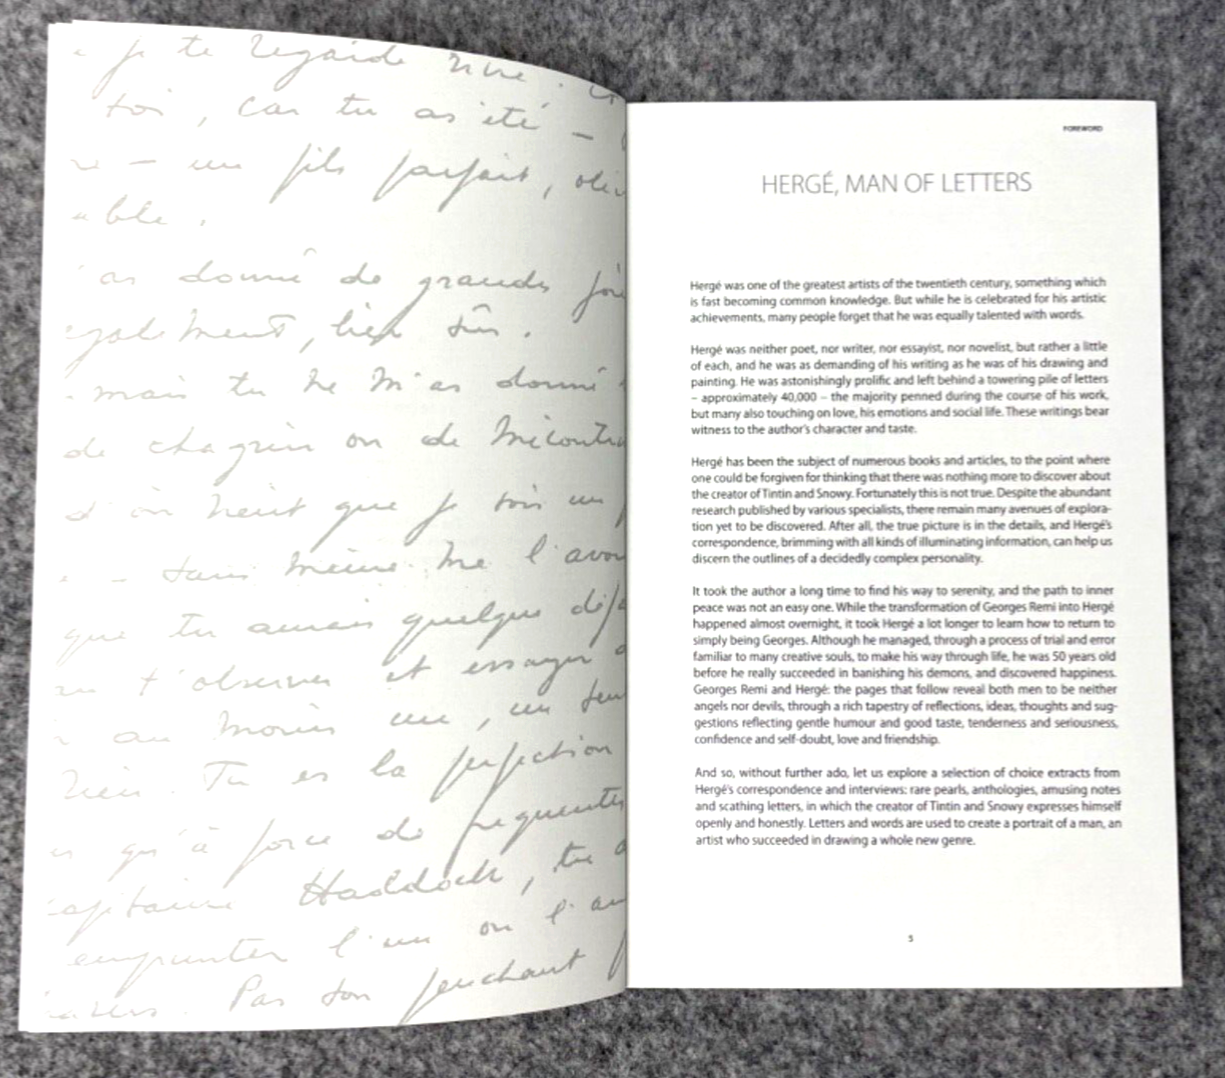 je te regarde vivre.
toi, car tu as été –
– un fils parfait,
able.
as donné de grandes
également, bien sûr.
mais tu ne m'as donné
de chagrin ou de
que je sois un
même me l'avou
que tu aurais quelque
t'observer et essayer
au moins un, un seul
rien. Tu es la perfection
qu'à force de fréquenter
capitaine Haddock, tu
emprunter l'un ou l'au
Pas son penchant
FOREWORD
HERGÉ, MAN OF LETTERS
Hergé was one of the greatest artists of the twentieth century, something which
is fast becoming common knowledge. But while he is celebrated for his artistic
achievements, many people forget that he was equally talented with words.
Hergé was neither poet, nor writer, nor essayist, nor novelist, but rather a little
of each, and he was as demanding of his writing as he was of his drawing and
painting. He was astonishingly prolific and left behind a towering pile of letters
– approximately 40,000 – the majority penned during the course of his work,
but many also touching on love, his emotions and social life. These writings bear
witness to the author's character and taste.
Hergé has been the subject of numerous books and articles, to the point where
one could be forgiven for thinking that there was nothing more to discover about
the creator of Tintin and Snowy. Fortunately this is not true. Despite the abundant
research published by various specialists, there remain many avenues of explora-
tion yet to be discovered. After all, the true picture is in the details, and Hergé's
correspondence, brimming with all kinds of illuminating information, can help us
discern the outlines of a decidedly complex personality.
It took the author a long time to find his way to serenity, and the path to inner
peace was not an easy one. While the transformation of Georges Remi into Hergé
happened almost overnight, it took Hergé a lot longer to learn how to return to
simply being Georges. Although he managed, through a process of trial and error
familiar to many creative souls, to make his way through life, he was 50 years old
before he really succeeded in banishing his demons, and discovered happiness.
Georges Remi and Hergé: the pages that follow reveal both men to be neither
angels nor devils, through a rich tapestry of reflections, ideas, thoughts and sug-
gestions reflecting gentle humour and good taste, tenderness and seriousness,
confidence and self-doubt, love and friendship.
And so, without further ado, let us explore a selection of choice extracts from
Hergé's correspondence and interviews: rare pearls, anthologies, amusing notes
and scathing letters, in which the creator of Tintin and Snowy expresses himself
openly and honestly. Letters and words are used to create a portrait of a man, an
artist who succeeded in drawing a whole new genre.
5